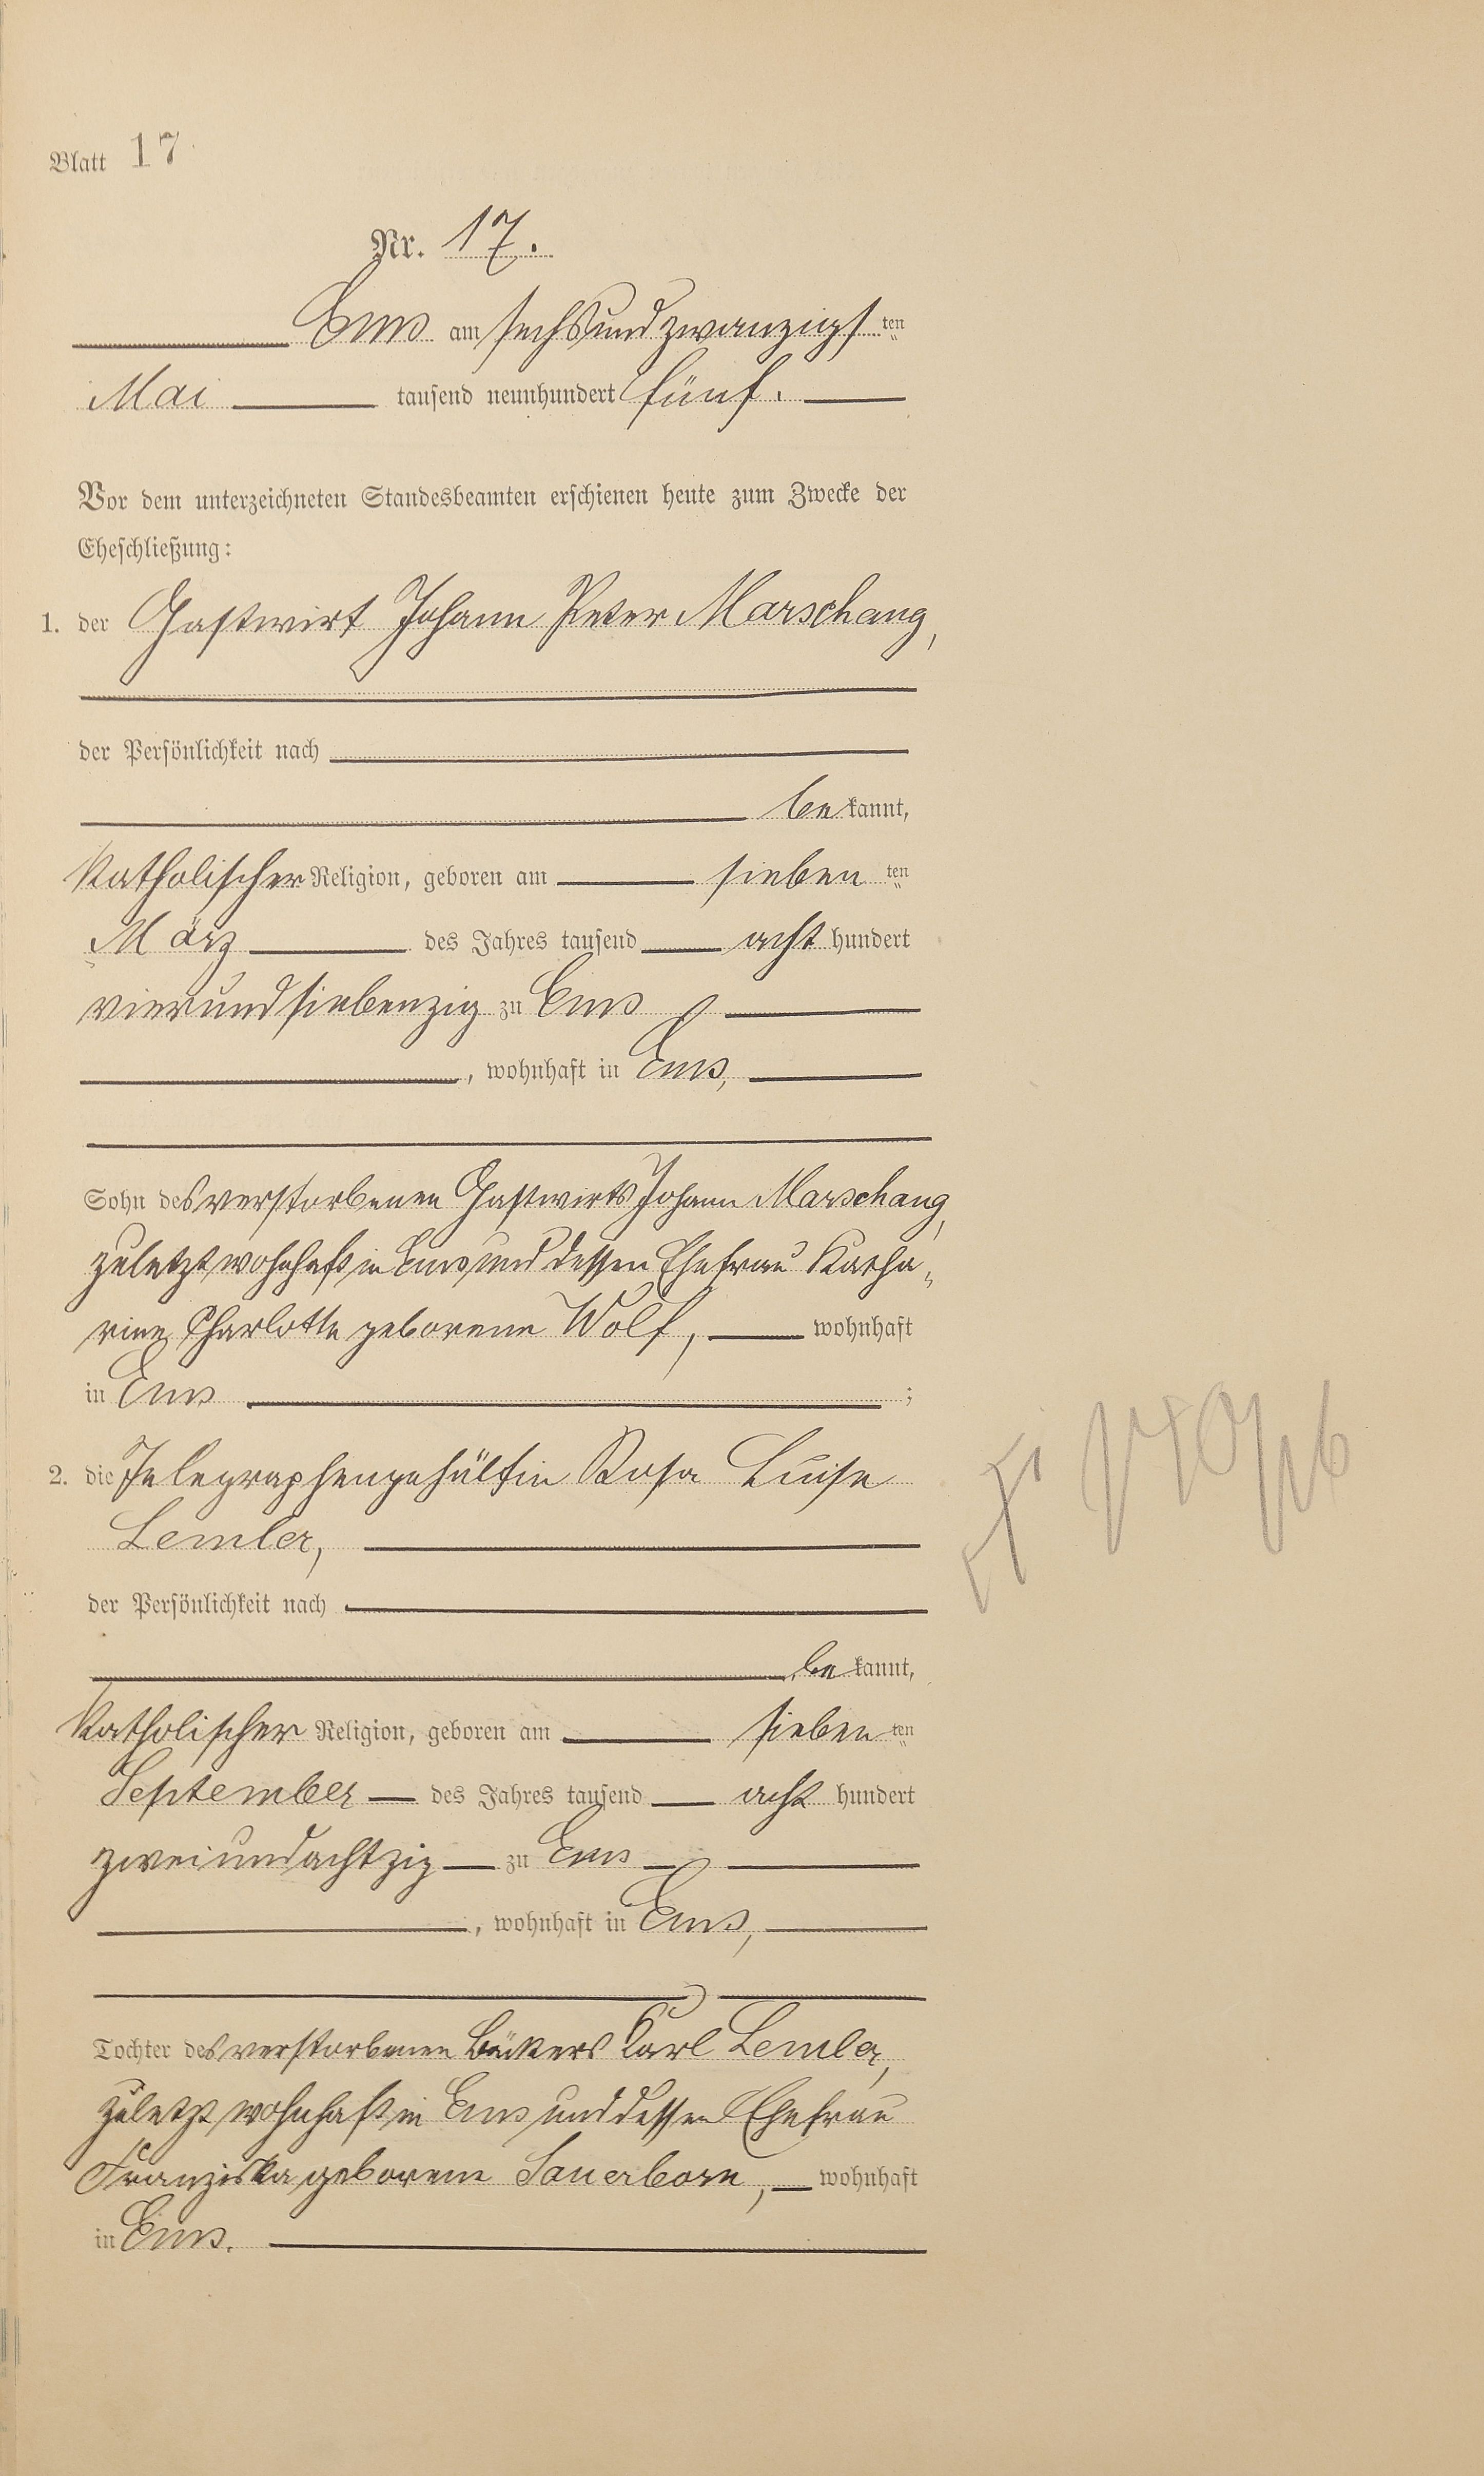 Blatt 17
Nr. 17.
Ems am sechsundzwanzigsten
Mai tausend neunhundert fünf.
Vor dem unterzeichneten Standesbeamten erschienen heute zum Zwecke der
Eheschließung:
1. der Gastwirt Johann Peter Marschang,
der Persönlichkeit nach
bekannt,
katholischer Religion, geboren am siebenten
März des Jahres tausend achthundert
vierundsiebenzig zu Ems
, wohnhaft in Ems,
Sohn des verstorbenen Gastwirts Johann Marschang,
zuletzt wohnhaft in Ems und dessen Ehefrau Katha-
rine Charlotte geborenen Wolf, wohnhaft
in Ems ;
2. die Telegraphengehülfin Rosa Luise
Lemler,
der Persönlichkeit nach
bekannt,
katholischer Religion, geboren am siebenten
September des Jahres tausend achthundert
zweiundachtzig zu Ems
, wohnhaft in Ems,
Tochter des verstorbenen Bäckers Karl Lemler,
zuletzt wohnhaft in Ems und dessen Ehefrau
Franziska geborenen Sauerborn, wohnhaft
in Ems.